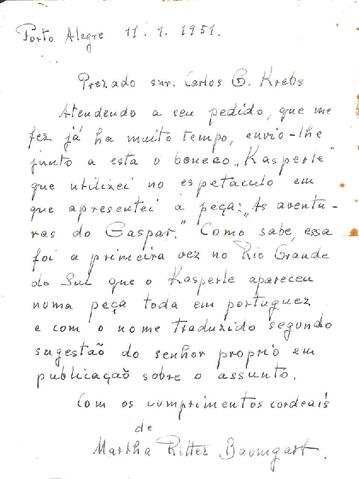 Porto Alegre 11.1.1951.
Prezado snr. Carlos G. Krebs
Atendendo a seu pedido, que me
fez já ha muito tempo, envio-lhe
junto a esta o boneco „Kasperle"
que utilizei no espetáculo em
que apresentei a peça: „As aventu-
ras do Gaspar." Como sabe essa
foi a primeira vez no Rio Grande
do Sul que o Kasperle apareceu
numa peça toda em portuguez
e com o nome traduzido segundo
sugestão do senhor proprio em
publicação sobre o assunto.
Com os cumprimentos cordeais
de
Martha Ritter Baumgart.